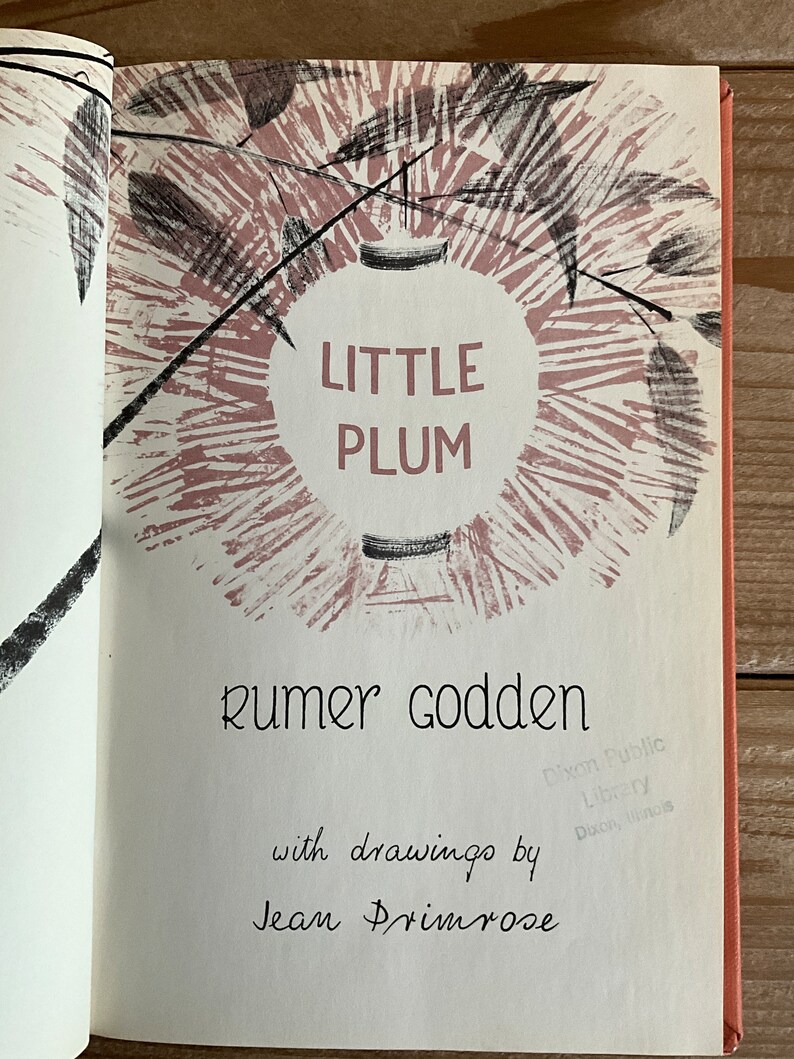 LITTLE
PLUM
Rumer Godden
with drawings by
Jean Primrose
Dixon Public
Library
Dixon, Illinois